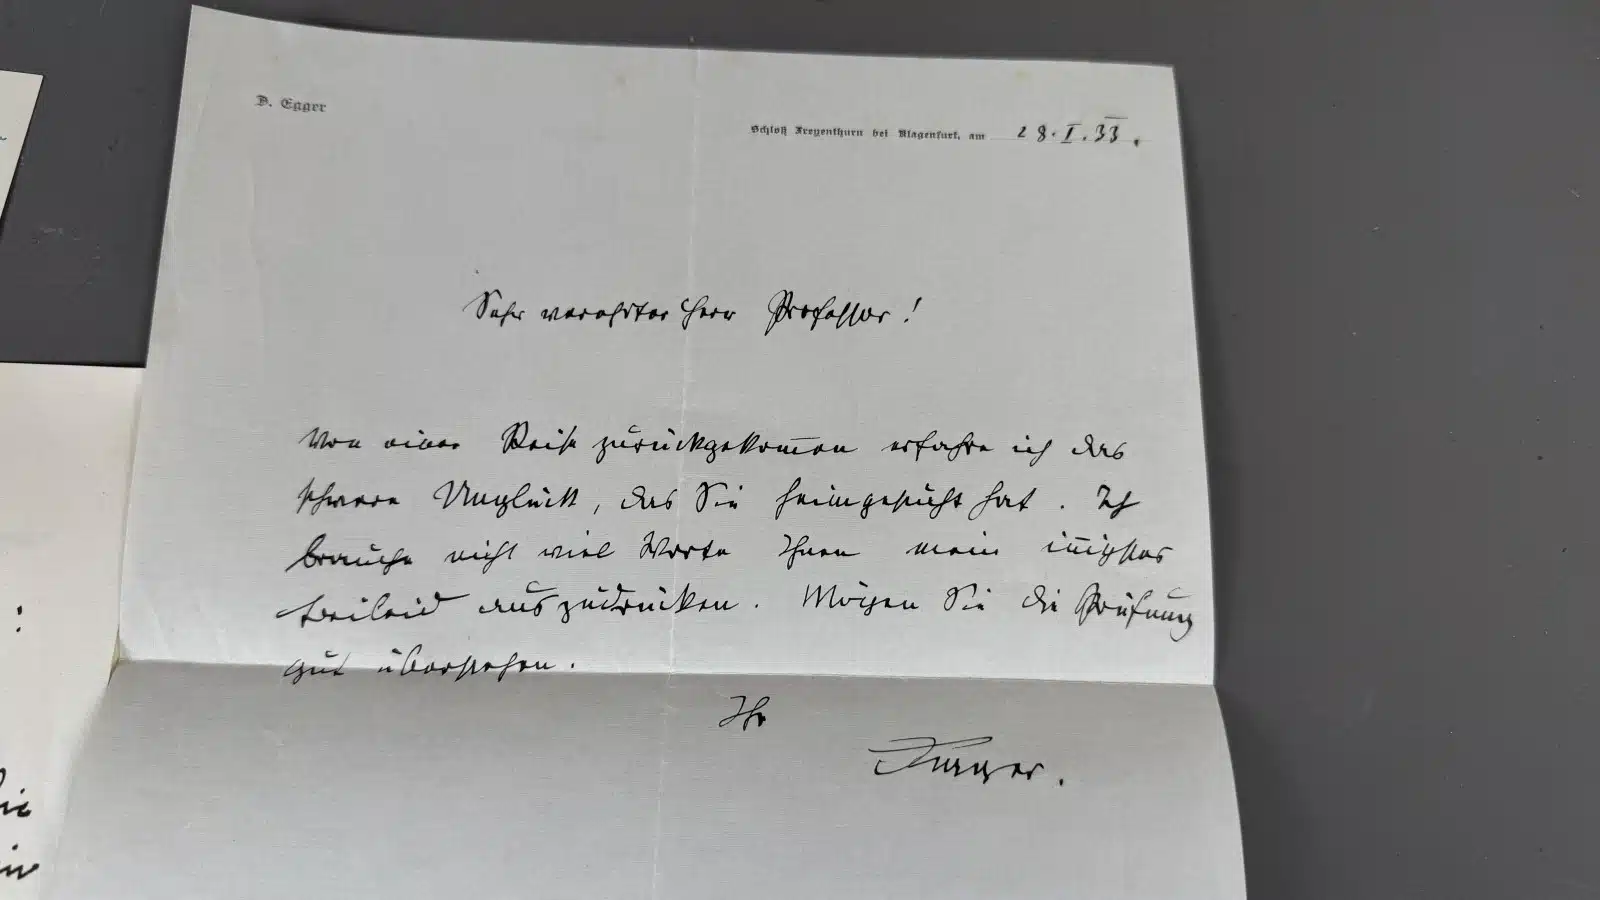 D. Egger
Schloß Freyenthurn bei Klagenfurt, am 28. I. 33.
Sehr verehrter Herr Professor!
Von einer Reise zurückgekommen erfahre ich das
schwere Unglück, das Sie heimgesucht hat. Ich
brauche nicht viel Worte Ihnen mein innigstes
Beileid auszudrücken. Mögen Sie die Prüfung
gut überstehen.
Ihr